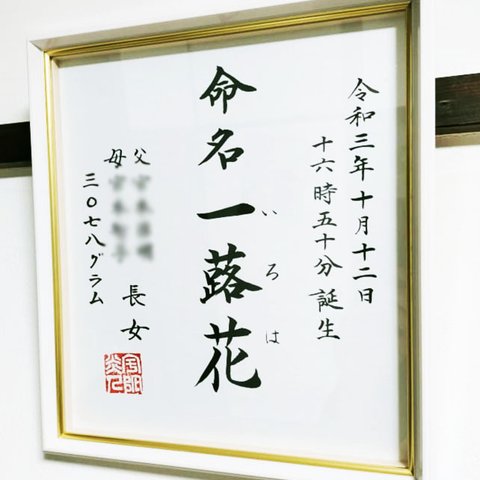 令和三年十月十二日
十六時五十分誕生
命名 一蕗花
いろは
父
母
長女
三〇七八グラム